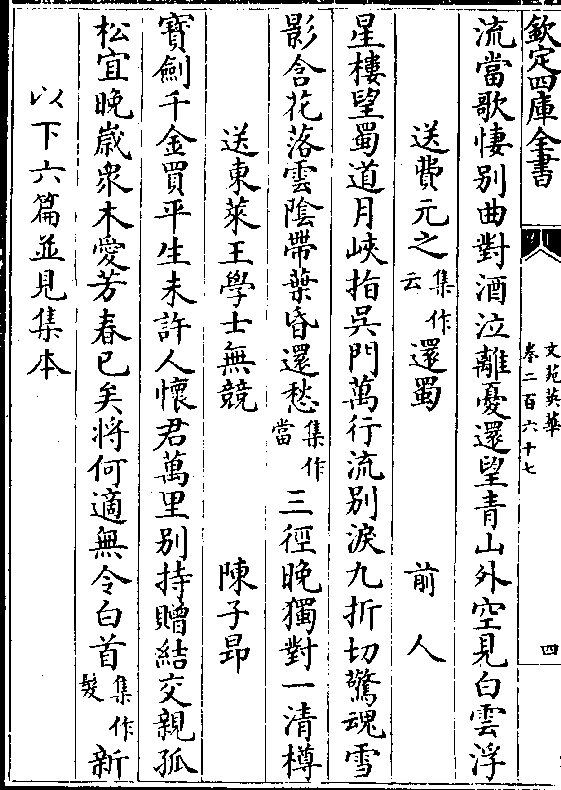 欽定四庫全書
文苑英華
卷二百六十七
四
流當歌悽別曲對酒泣離憂還望青山外空見白雲浮
送費元之集作云還蜀　前人
星樓望蜀道月峽指吳門萬行流別淚九折切驚魂雪
影含花落雲陰帶葉昏還愁集作當三徑晚獨對一清樽
送東萊王學士無競　陳子昂
寶劍千金買平生未許人懷君萬里別持贈結交親孤
松宜晚歲衆木愛芳春已矣將何適無令白首集作髮新
以下六篇並見集本